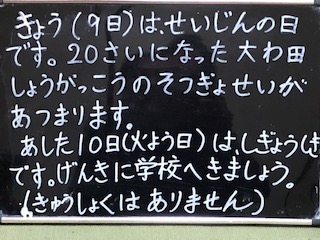 きょう(9日)は、せいじんの日
です。20さいになった大わ田
しょうがっこうのそつぎょせいが
あつまります。
あした10日(火よう日)は、しぎょうしき
です。げんきに学校へきましょう。
(きゅうしょくはありません)